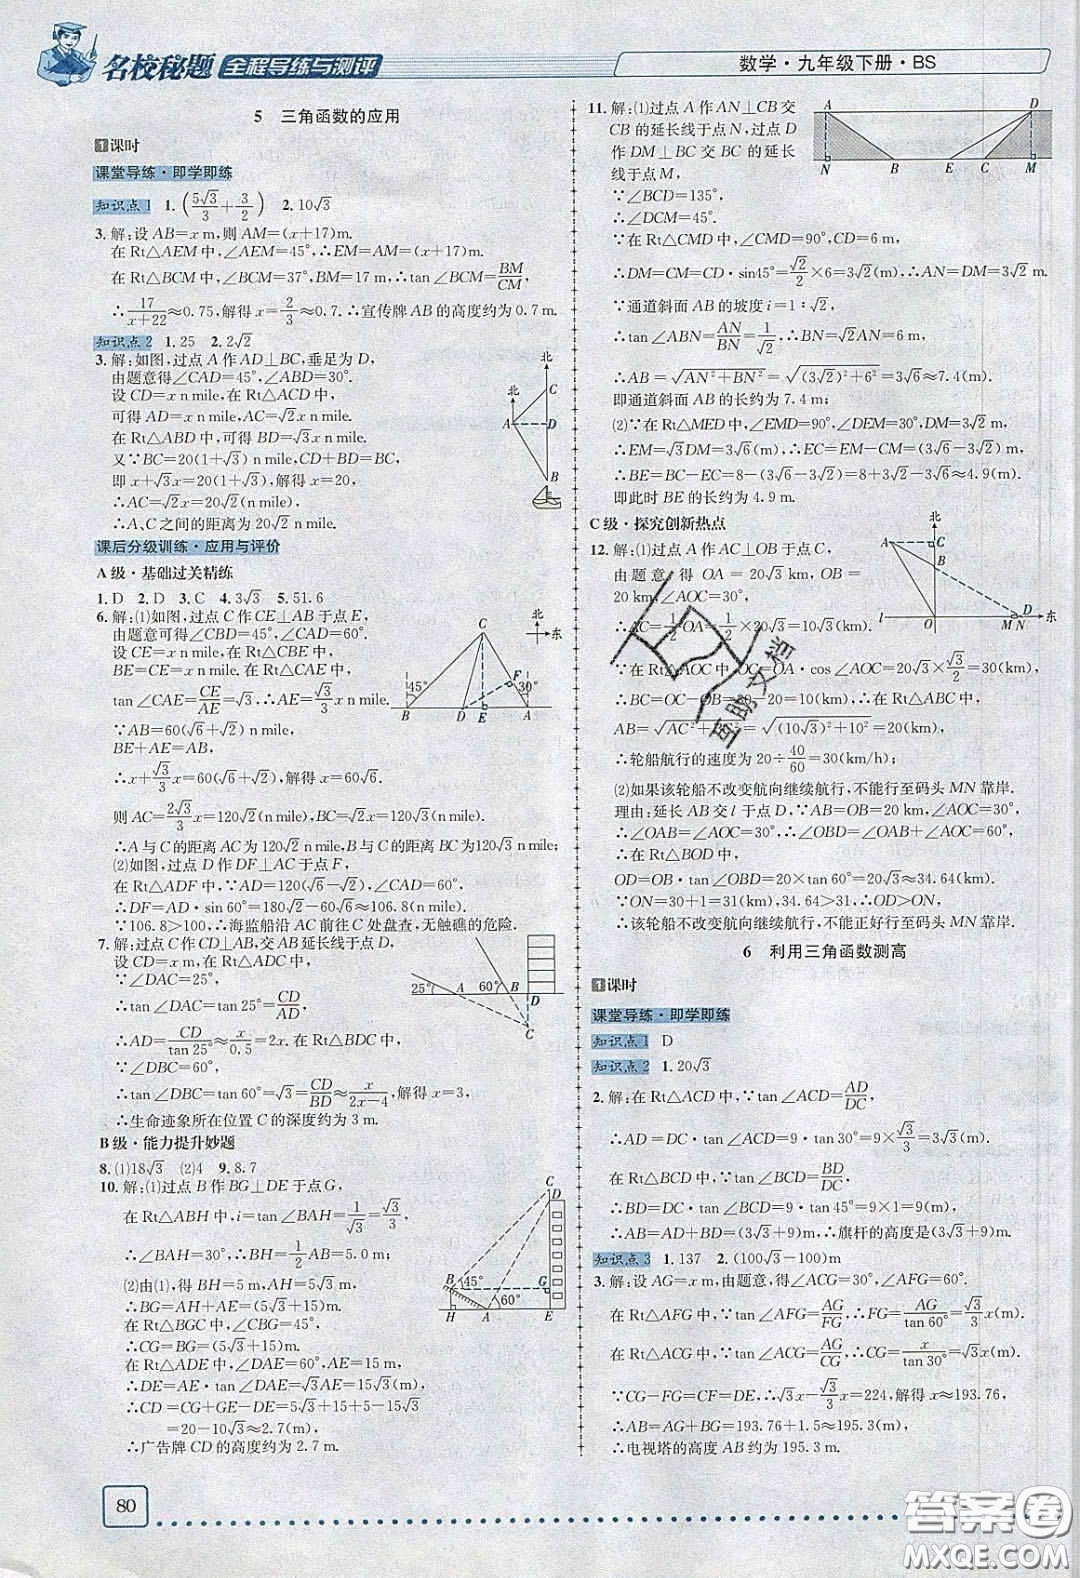 名校秘题 全程导练与测评
数学·九年级下册·BS
5 三角函数的应用
1课时
课堂导练·即学即练
知识点1 1.(5√3/3+3/2) 2.10√3
3.解:设AB=x m,则AM=(x+17)m.
在Rt△AEM中,∠AEM=45°,∴EM=AM=(x+17)m.
在Rt△BCM中,∠BCM=37°,BM=17 m,∴tan∠BCM=BM/CM,
∴17/(x+22)≈0.75,解得x=2/3≈0.7.∴宣传牌AB的高度约为0.7 m.
知识点2 1.25 2.2√2
3.解:如图,过点A作AD⊥BC,垂足为D,
由题意得∠CAD=45°,∠ABD=30°.
设CD=x n mile,在Rt△ACD中,
可得AD=x n mile,AC=√2x n mile.
在Rt△ABD中,可得BD=√3x n mile.
又∵BC=20(1+√3)n mile,CD+BD=BC,
即x+√3x=20(1+√3),解得x=20,
∴AC=√2x=20√2(n mile).
∴A、C之间的距离为20√2 n mile.
北
北
C
A
D
B
课后分级训练·应用与评价
A级·基础过关精练
1.D 2.D 3.C 4.3√3 5.51.6
6.解:(1)如图,过点C作CE⊥AB于点E,
由题意可得∠CBD=45°,∠CAD=60°.
设CE=x,在Rt△CBE中,
BE=CE=x.在Rt△CAE中,
tan∠CAE=CE/AE=√3,∴AE=√3/3x.
∵AB=60(√6+√2),
BE+AE=AB,
∴x+√3/3x=60(√6+√2),解得x=60√6.
则AC=2√3/3x=120√2(n mile),BC=√2x=120√3(n mile).
∴A与C的距离AC为120√2 n mile,B与C的距离BC为120√3 n mile;
(2)如图,过点D作DF⊥AC于点F,
在Rt△ADF中,∵AD=120(√6-√2),∠CAD=60°,
∴DF=AD·sin60°=180√2-60√6≈106.8.
∵106.8>100,∴海监船沿AC前往C处盘查,无触礁的危险.
C
北
东
45°
F
30°
B
D
E
A
7.解:过点C作CD⊥AB,交AB延长线于点D,
设CD=x m,在Rt△ADC中,
∵∠DAC=25°,
∴tan∠DAC=tan25°=CD/AD,
∴AD=CD/tan25°≈x/0.5=2x.在Rt△BDC中,
∵∠DBC=60°,
∴tan∠DBC=tan60°=CD/BD≈x/(2x-4),解得x=3,
∴生命迹象所在位置C的深度约为3 m.
25°
A
60°
B
D
C
B级·能力提升妙题
8.(1)18√3 (2)4 9.8.7
10.解:(1)过点B作BG⊥DE于点G,
在Rt△ABH中,i=tan∠BAH=1/√3=√3/3,
∴∠BAH=30°,∴BH=1/2AB=5.0 m;
(2)由(1),得BH=5 m,AH=5√3 m,
∴BG=AH+AE=(5√3+15)m.
在Rt△BGC中,∠CBG=45°,
∴CG=BG=(5√3+15)m.
在Rt△ADE中,∠DAE=60°,AE=15 m,
∴DE=AE·tan∠DAE=15√3(m),
∴CD=CG+GE-DE=5√3+15+5-15√3
=20-10√3≈2.7(m).
∴广告牌CD的高度约为2.7 m.
C
D
B
45°
G
60°
H
A
E
11.解:(1)过点A作AN⊥CB交
CB的延长线于点N,过点D
作DM⊥BC交BC的延长
线于点M,
∵∠BCD=135°,
∴∠DCM=45°.
∵在Rt△CMD中,∠CMD=90°,CD=6 m,
∴DM=CM=CD·sin45°=√2/2×6=3√2(m).∴AN=DM=3√2 m.
∵通道斜面AB的坡度i=1:√2,
∴tan∠ABN=AN/BN=1/√2.∴BN=√2AN=6 m.
∴AB=√(AN²+BN²)=√((3√2)²+6²)=3√6≈7.4(m).
即通道斜面AB的长约为7.4 m;
(2)∵在Rt△MED中,∠EMD=90°,∠DEM=30°,DM=3√2 m,
∴EM=√3DM=3√6(m),∴EC=EM-CM=(3√6-3√2)m,
∴BE=BC-EC=8-(3√6-3√2)=8+3√2-3√6≈4.9(m).
即此时BE的长约为4.9 m.
A
D
N
B
E
C
M
C级·探究创新热点
12.解:(1)过点A作AC⊥OB于点C,
由题意,得OA=20√3 km,OB=
20 km,∠AOC=30°,
∴AC=1/2OA=1/2×20√3=10√3(km).
∵在Rt△AOC中,OC=OA·cos∠AOC=20√3×√3/2=30(km),
∴BC=OC-OB=30-20=10(km),∴在Rt△ABC中,
AB=√(AC²+BC²)=√((10√3)²+10²)=20(km).
∴轮船航行的速度为20÷40/60=30(km/h);
(2)如果该轮船不改变航向继续航行,不能行至码头MN靠岸.
理由:延长AB交l于点D,∵AB=OB=20 km,∠AOC=30°,
∴∠OAB=∠AOC=30°,∴∠OBD=∠OAB+∠AOC=60°,
∴在Rt△BOD中,
OD=OB·tan∠OBD=20×tan60°=20√3≈34.64(km).
∵ON=30+1=31(km),34.64>31,∴OD>ON,
∴该轮船不改变航向继续航行,不能正好行至码头MN靠岸.
北
A
C
B
l
O
M N
D
东
互助文档
6 利用三角函数测高
1课时
课堂导练·即学即练
知识点1 D
知识点2 1.20√3
2.解:在Rt△ACD中,∵tan∠ACD=AD/DC,
∴AD=DC·tan∠ACD=9·tan30°=9×√3/3=3√3(m).
在Rt△BCD中,∵tan∠BCD=BD/DC,
∴BD=DC·tan∠BCD=9·tan45°=9×1=9(m).
∴AB=AD+BD=(3√3+9)m.∴旗杆的高度是(3√3+9)m.
知识点3 1.137 2.(100√3-100)m
3.解:设AG=x m,由题意,得∠ACG=30°,∠AFG=60°.
在Rt△AFG中,∵tan∠AFG=AG/FG,∴FG=AG/tan60°=√3/3x(m).
在Rt△ACG中,∵tan∠ACG=AG/CG,∴CG=x/tan30°=√3x(m).
∵CG-FG=CF=DE,∴√3x-√3/3x=224,解得x≈193.76,
∴AB=AG+BG=193.76+1.5≈195.3(m).
∴电视塔的高度AB约为195.3 m.
80
答案圈
MXQE.COM